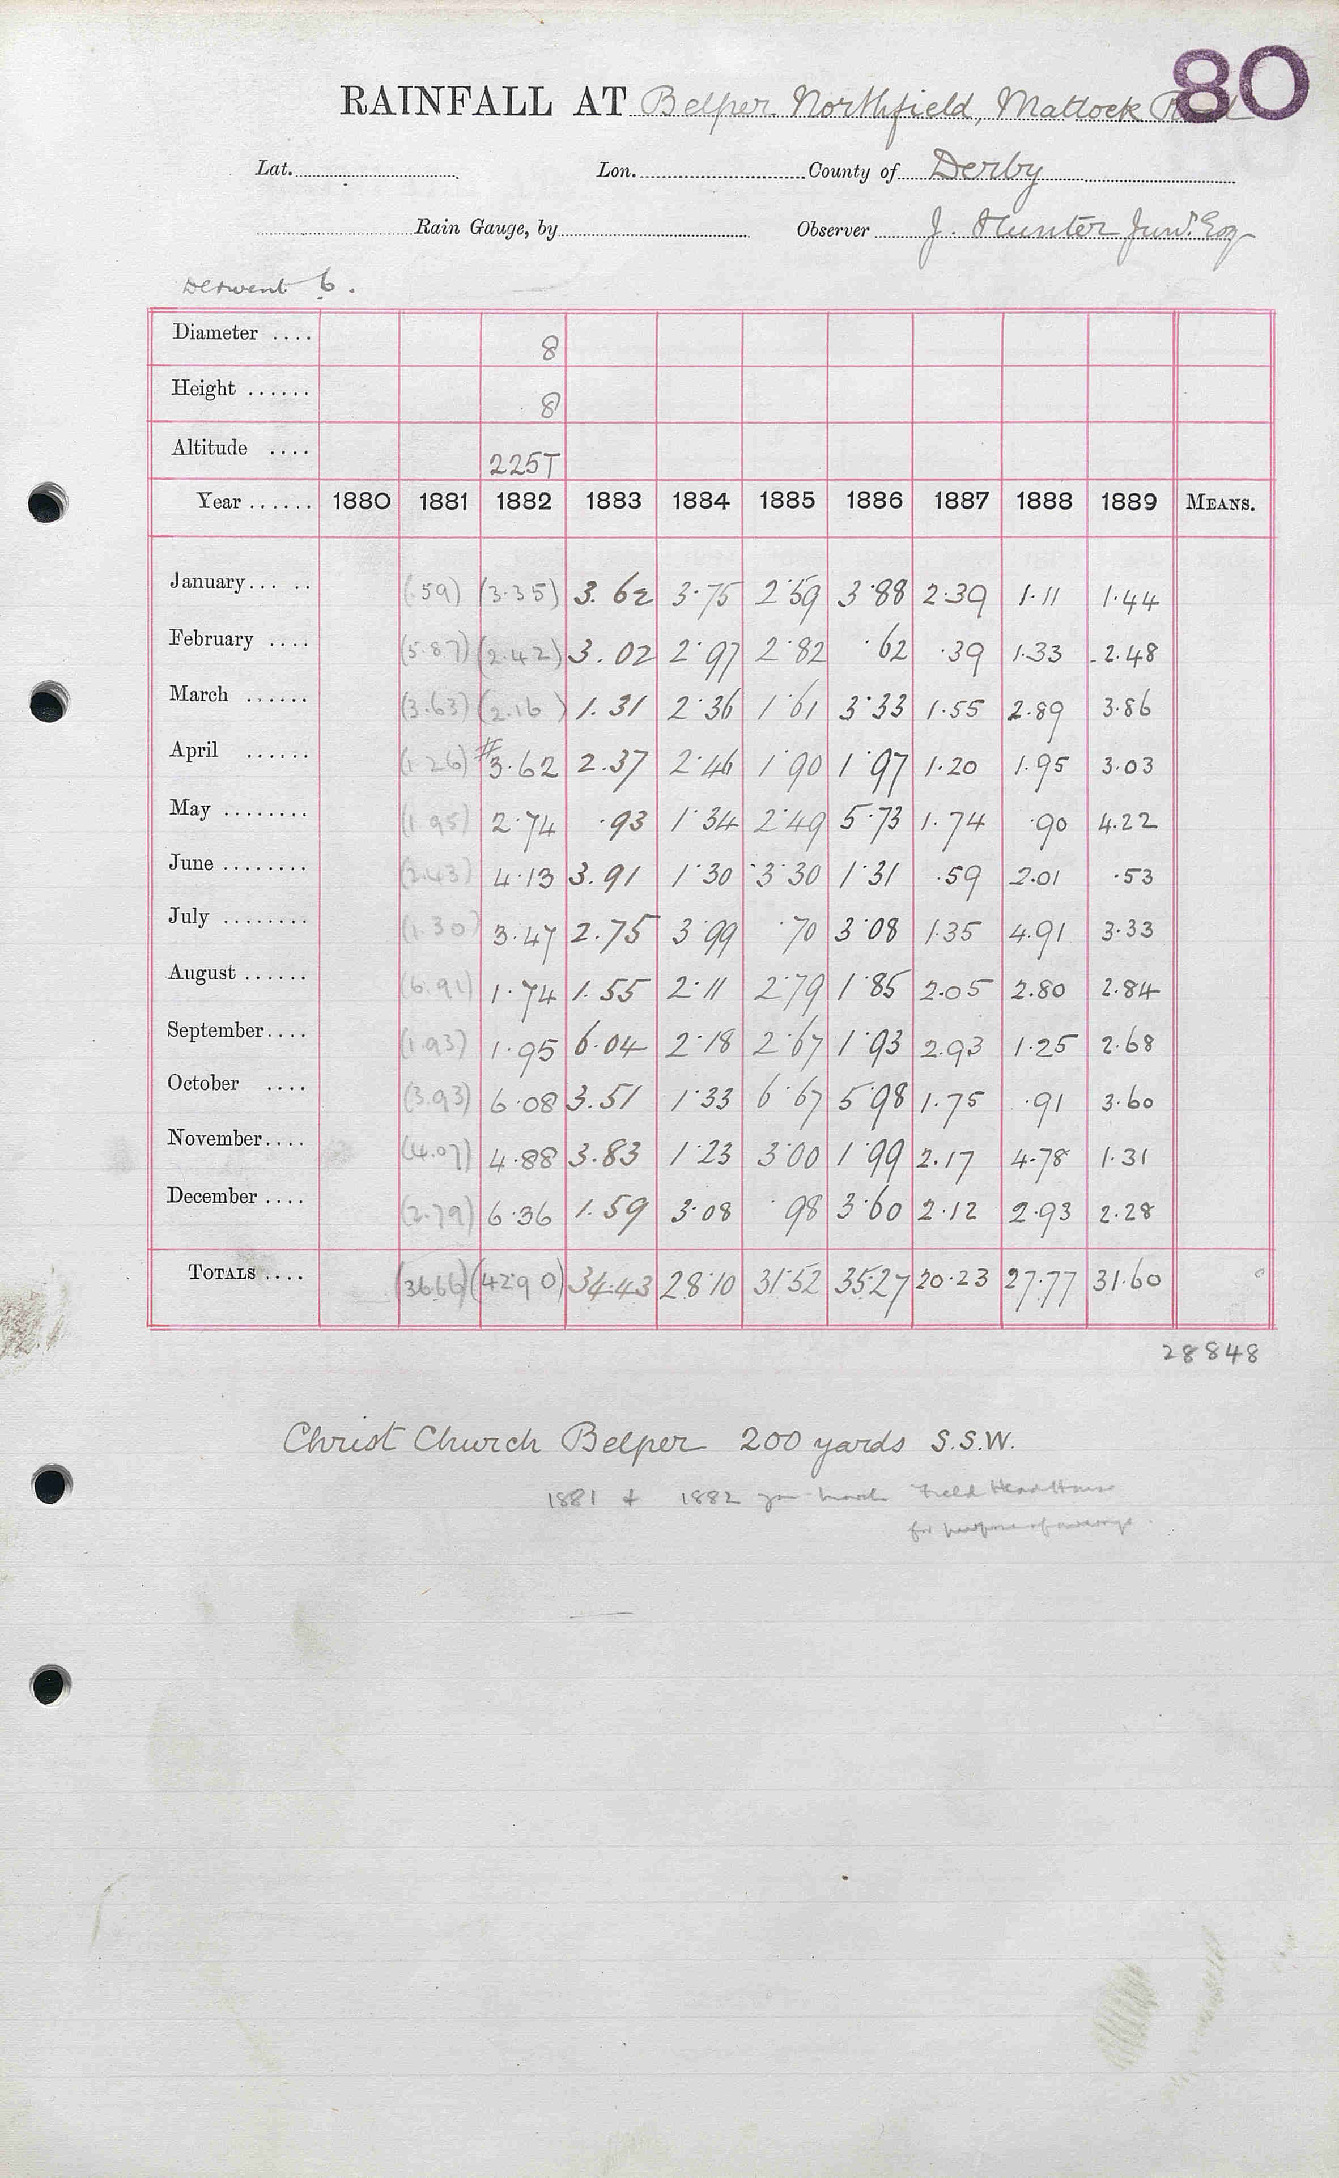 80
RAINFALL AT Belper Northfield, Matlock Road
Lat. Lon. County of Derby
Rain Gauge, by Observer J. Hunter Junr. Esq
Derwent 6.
Diameter .... 8
Height ...... 8
Altitude .... 225T
Year ...... 1880 1881 1882 1883 1884 1885 1886 1887 1888 1889 MEANS.
January... .. (.59) (3.35) 3.62 3.75 2.59 3.88 2.39 1.11 1.44
February .... (5.87) (2.42) 3.02 2.97 2.82 .62 .39 1.33 2.48
March ...... (3.63) (2.16) 1.31 2.36 1.61 3.33 1.55 2.89 3.86
April ...... (1.26) #3.62 2.37 2.46 1.90 1.97 1.20 1.95 3.03
May ........ (1.95) 2.74 .93 1.34 2.49 5.73 1.74 .90 4.22
June ........ (2.43) 4.13 3.91 1.30 3.30 1.31 .59 2.01 .53
July ........ (1.30) 3.47 2.75 3.99 .70 3.08 1.35 4.91 3.33
August ...... (6.91) 1.74 1.55 2.11 2.79 1.85 2.05 2.80 2.84
September.... (1.93) 1.95 6.04 2.18 2.67 1.93 2.93 1.25 2.68
October .... (3.93) 6.08 3.51 1.33 6.67 5.98 1.75 .91 3.60
November.... (4.07) 4.88 3.83 1.23 3.00 1.99 2.17 4.78 1.31
December .... (2.79) 6.36 1.59 3.08 .98 3.60 2.12 2.93 2.28
TOTALS .... (36.66) (42.90) 34.43 28.10 31.52 35.27 20.23 27.77 31.60
28848
Christ Church Belper 200 yards S.S.W.
1881 & 1882 Field Head House
for purpose of average.